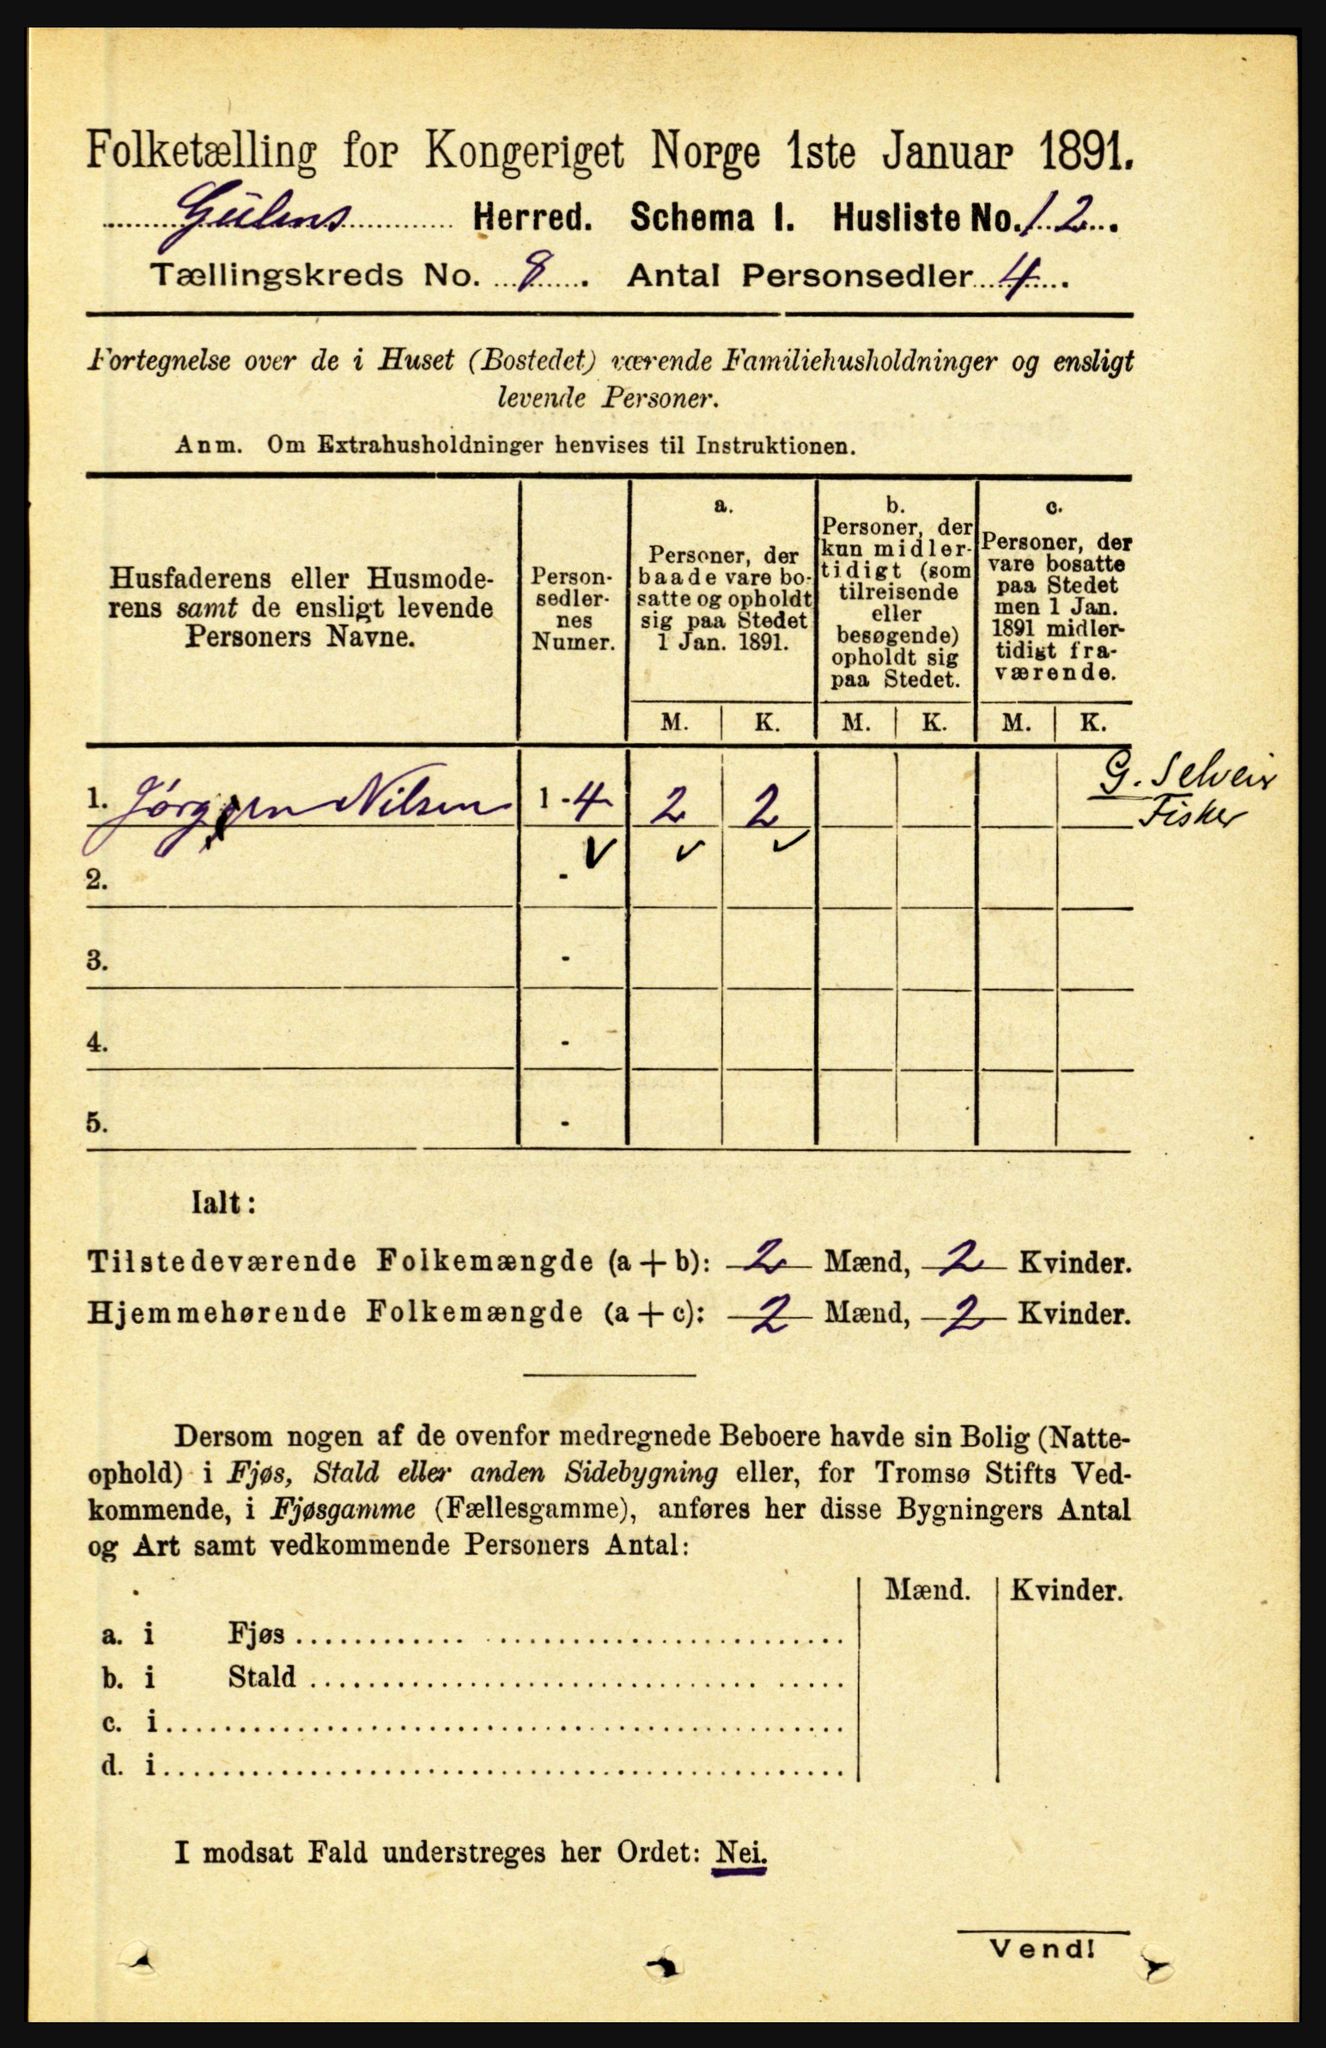 Folketælling for Kongeriget Norge 1ste Januar 1891.
Gulens Herred. Schema I. Husliste No. 12.
Tællingskreds No. 8. Antal Personsedler 4.
Fortegnelse over de i Huset (Bostedet) værende Familiehusholdninger og ensligt
levende Personer.
Anm. Om Extrahusholdninger henvises til Instruktionen.
Husfaderens eller Husmode-
rens samt de ensligt levende
Personers Navne.
Person-
sedler-
nes
Numer.
a.
Personer, der
baade vare bo-
satte og opholdt
sig paa Stedet
1 Jan. 1891.
b.
Personer, der
kun midler-
tidigt (som
tilreisende
eller
besøgende)
opholdt sig
paa Stedet.
c.
Personer, der
vare bosatte
paa Stedet
men 1 Jan.
1891 midler-
tidigt fra-
værende.
M. K. M. K. M. K.
1. Jørgen Nilsen 1-4 2 2 G. Selveir
Fisker
2. -
3. -
4. -
5. -
Ialt:
Tilstedeværende Folkemængde (a + b): 2 Mænd, 2 Kvinder.
Hjemmehørende Folkemængde (a + c): 2 Mænd, 2 Kvinder.
Dersom nogen af de ovenfor medregnede Beboere havde sin Bolig (Natte-
ophold) i Fjøs, Stald eller anden Sidebygning eller, for Tromsø Stifts Ved-
kommende, i Fjøsgamme (Fællesgamme), anføres her disse Bygningers Antal
og Art samt vedkommende Personers Antal:
Mænd. Kvinder.
a. i Fjøs
b. i Stald
c. i
d. i
I modsat Fald understreges her Ordet: Nei.
Vend!